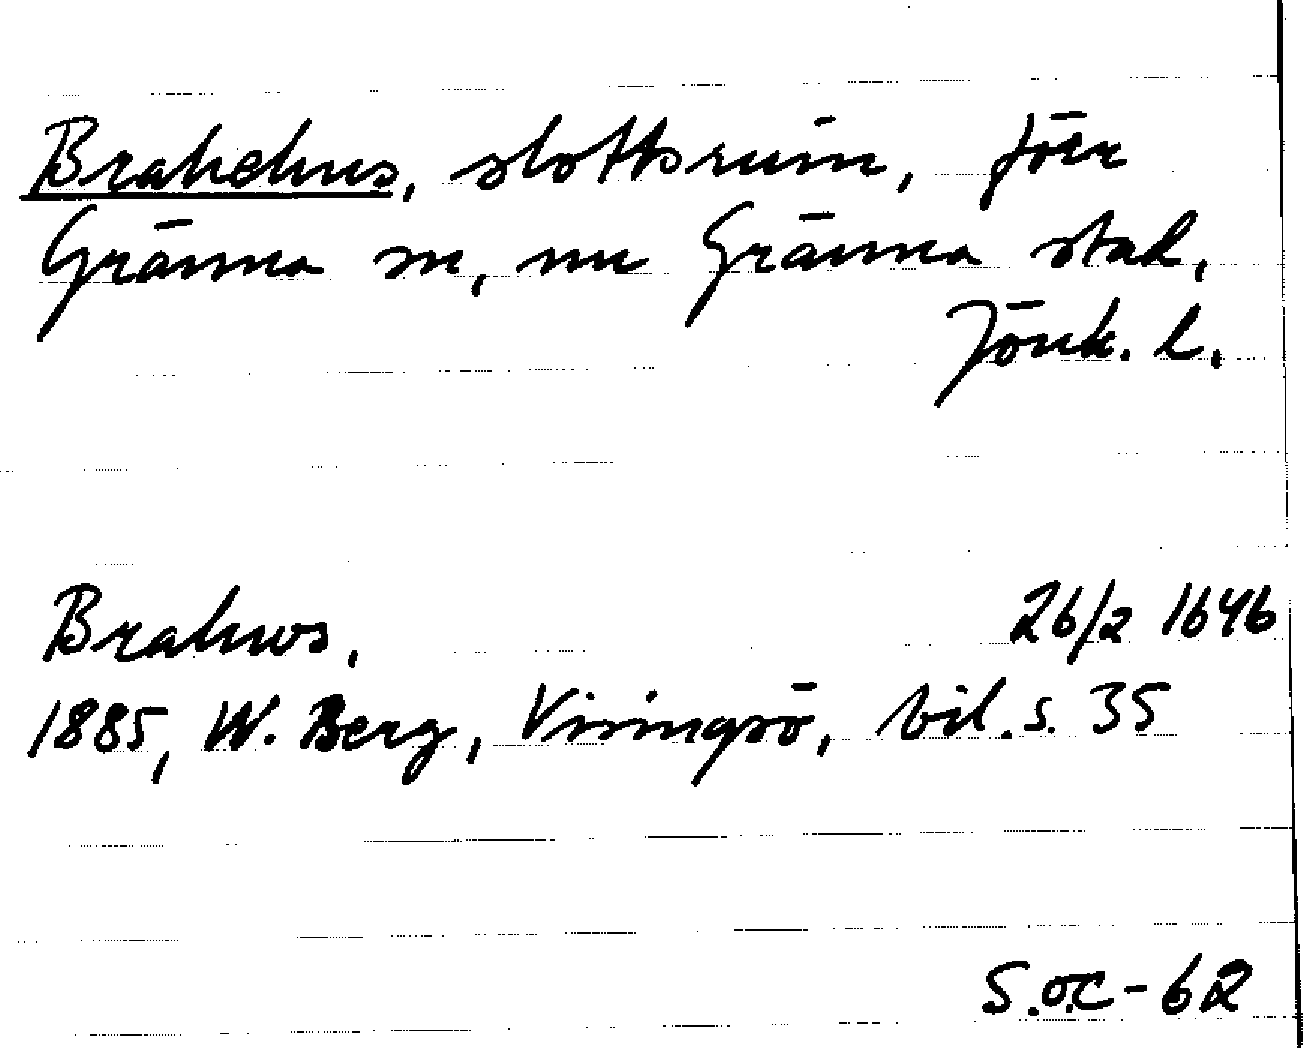 Brahehus, slottsruin, förr
Gränna sn, nu Gränna stad,
Jönk. l.
Brahus, 26/2 1646
1885, W. Berg, Visingsö, bil. s. 35
S.o.C - 62